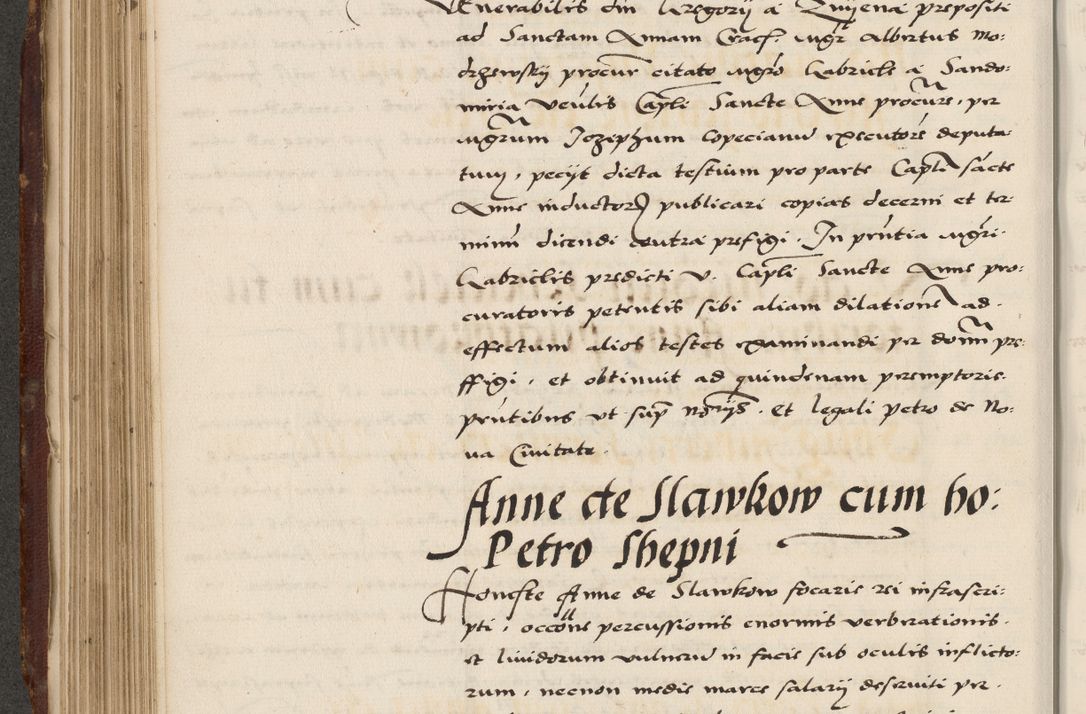 Venerabilis dni Gregorii a Zvijena prepositi
ad Sanctam Annam Crac. mgr Albertus Mo:
drzewskij procur citato mgro Gabriele a Sando:
miria veculis Capli Sancte Anne procure, per
mgrum Jozephum Copecianu executore deputa
tum, pecijt dicta testium pro parte Capli sacte
Anne inductor publicari copias decerni et ter
minu dicendi contra prefigi. In pntia mgri
Gabrielis predicti v. Capli Sancte Anne pro:
curatoris petentis sibi aliam dilatione ad
effectum alios testes examinandi per domn pre
ffigi, et obtinuit ad quindenam peremptorie
pntibus ut sup noriis. et legali Petro de No:
va Civitate.
Anne de Slawkow cum ho:
Petro Shepni
Honeste Anne de Slawkow focarie rei infrascri:
pti, occone percussionis enormis verberationis
et lividorum vulneru in facie sub oculis inflicto:
rum, necnon medie marce salarij deserviti per